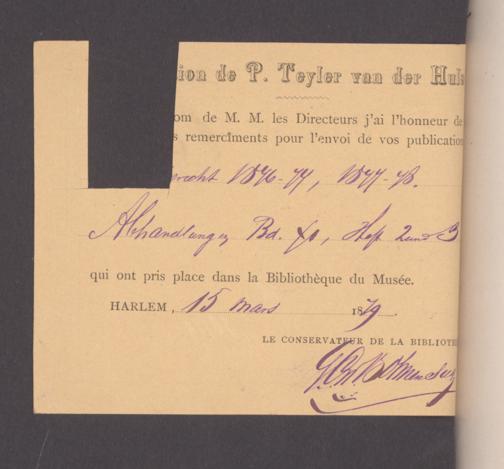 ion de P. Teyler van der Huls
om de M. M. les Directeurs j'ai l'honneur de
s remercîments pour l'envoi de vos publication
richt 1876-77, 1877-78.
Abhandlungen Bd. , Heft 2 und 3
qui ont pris place dans la Bibliothèque du Musée.
HARLEM, 15 mars 1879
LE CONSERVATEUR DE LA BIBLIOTH